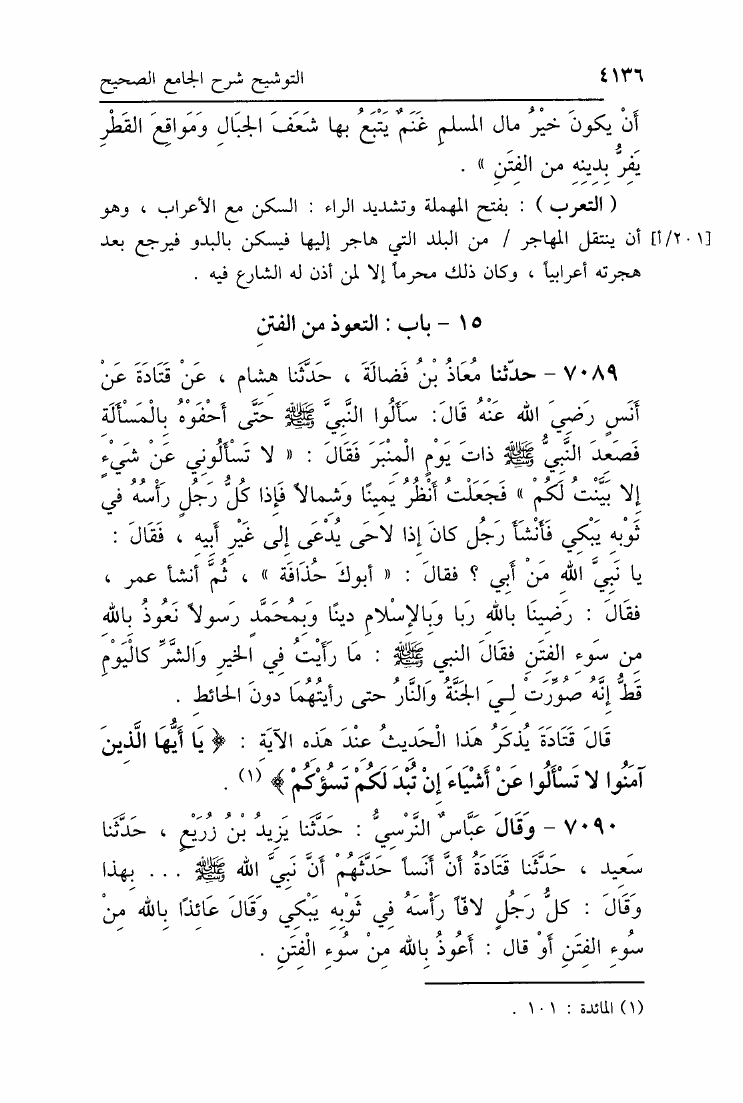 ٤١٣٦ التوشيح شرح الجامع الصحيح
أَنْ يكونَ خيْرُ مال المسلمِ غَنَمٌ يَتْبَعُ بها شَعَفَ الجبَالِ وَمَواقِعَ القَطْرِ
يَفِرُّ بِدِينِهِ من الفِتَنِ » .
( التعرب ) : بفتح المهملة وتشديد الراء : السكن مع الأعراب ، وهو
[٢٠١/أ] أن ينتقل المهاجر / من البلد التي هاجر إليها فيسكن بالبدو فيرجع بعد
هجرته أعرابياً ، وكان ذلك محرماً إلا لمن أذن له الشارع فيه .
١٥ - باب : التعوذ من الفتن
٧٠٨٩ - حدّثنا مُعَاذُ بْنُ فَضالَةَ ، حَدَّثَنا هِشام ، عَنْ قَتَادَةَ عَنْ
أَنَسٍ رَضِيَ الله عَنْهُ قَالَ: سَأَلُوا النَّبِيَّ ﷺ حَتَّى أَحْفَوْهُ بِالْمَسْأَلَةِ
فَصَعِدَ النَّبِيُّ ﷺ ذاتَ يَوْمٍ الْمِنْبَرَ فَقَالَ : « لا تَسْأَلُونِي عَنْ شَيْءٍ
إِلا بَيَّنْتُ لَكُمْ » فَجَعَلْتُ أَنْظُرُ يَمِينًا وَشِمالاً فَإِذا كُلُّ رَجُلٍ رَأْسُهُ في
ثَوْبِهِ يَبْكِي فَأَنْشَأَ رَجُل كانَ إذا لاحَى يُدْعَى إلى غَيْرِ أَبِيهِ ، فَقَالَ :
يا نَبِيَّ الله مَنْ أَبي ؟ فقالَ : « أبوكَ حُذَافَة » ، ثُمَّ أنشأ عمر ،
فقَالَ : رَضِينَا بالله رَبا وَبِالإِسْلامِ دينًا وَبِمُحَمَّدٍ رَسولاً نَعُوذُ بِالله
مِن سُوءِ الفِتَنِ فقَالَ النبي ﷺ : مَا رَأَيْتُ فِي الخيرِ وَالشَّرِّ كالْيَوْمِ
قَطُّ إِنَّهُ صُوِّرَتْ لِيَ الجَنَّةُ وَالنَّارُ حتى رأيتُهُمَا دونَ الحَائطِ .
قَالَ قَتَادَةَ يُذْكَرُ هَذا الْحَدِيثُ عِنْدَ هَذِهِ الآيَةِ : ﴿ يَا أَيُّهَا الَّذِينَ
آمَنُوا لا تَسْأَلُوا عَنْ أَشْيَاءَ إِنْ تُبْدَ لَكُمْ تَسُؤْكُمْ ﴾ (١) .
٧٠٩٠ - وَقَالَ عَبَّاسٌ النَّرْسِيُّ : حَدَّثَنا يَزِيدُ بْنُ زُرَيْعٍ ، حَدَّثَنا
سَعِيد ، حَدَّثَنا قَتَادَةُ أَنَّ أَنَساً حَدَّثَهُمْ أَنَّ نَبِيَّ الله ﷺ ... بِهذا
وَقَالَ : كلُّ رَجُلٍ لافّاً رَأْسَهُ فِي ثَوْبِهِ يَبْكِي وَقَالَ عَائِذًا بِالله مِنْ
سُوءِ الفِتَنِ أَوْ قال : أَعُوذُ بِالله مِنْ سُوءِ الْفِتَنِ .
(١) المائدة : ١٠١ .